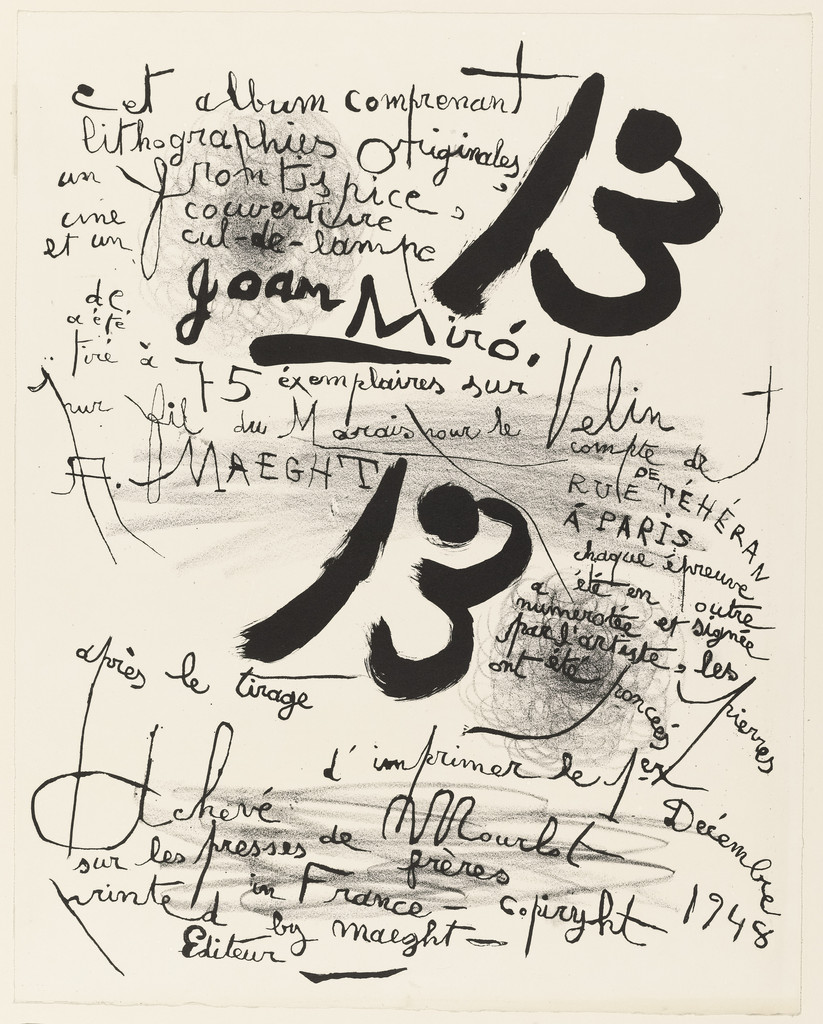 cet album comprenant 13
lithographies originales,
un frontispice,
une couverture
et un cul-de-lampe
de Joan Miró.
a été
tiré à 75 exemplaires sur Velin
pur fil du Marais pour le compte de
A. MAEGHT 13 RUE DE TÉHÉRAN
À PARIS
chaque épreuve
a été en outre
numerotée et signée
par l'artiste, les pierres
ont été poncées
après le tirage
Achevé d'imprimer le 1er Décembre 1948
sur les presses de Mourlot
frères
printed in France - copiryht
by maeght -
Editeur